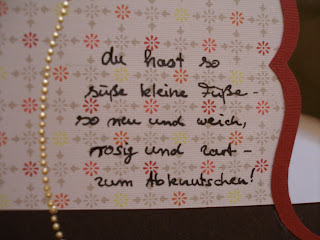 du hast so
süße kleine Füße -
so neu und weich,
rosig und zart -
zum Abknutschen!